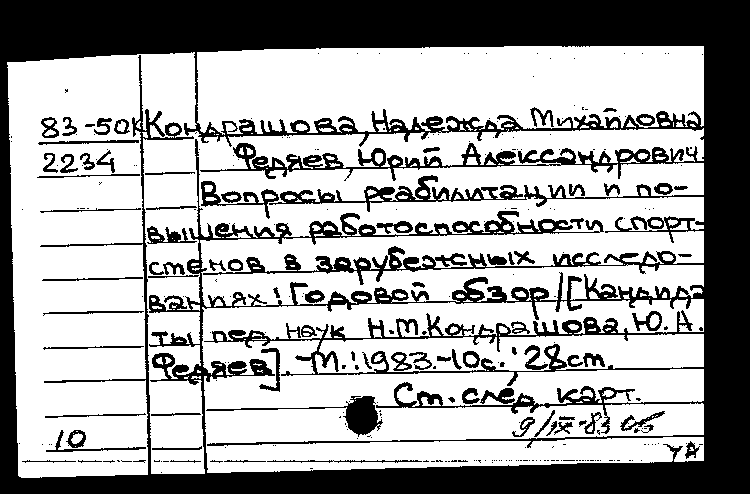 83-50К Кондрашова, Надежда Михайловна,
2234 Федяев, Юрий Александрович.
Вопросы реабилитации и по-
вышения работоспособности спорт-
сменов в зарубежных исследо-
ваниях: Годовой обзор/[Кандида
ты пед. наук Н.М.Кондрашова, Ю.А.
Федяев]. -М.:1983.-10с.; 28см.
Ст. след. карт.
9/IX-83
10